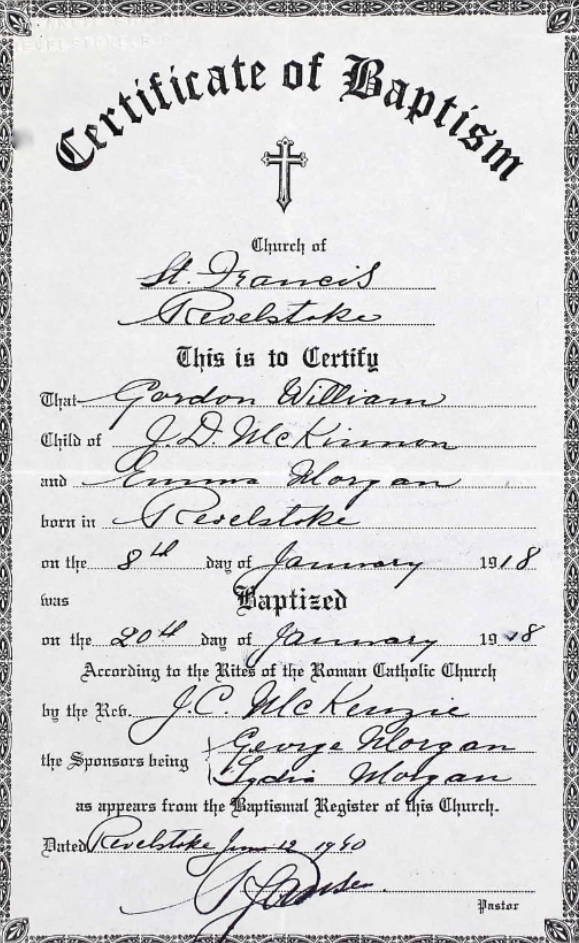 REVELSTOKE, B.C.
Certificate of Baptism
Church of
St. Francis
Revelstoke
This is to Certify
That Gordon William
Child of J. D. McKinnon
and Emma Morgan
born in Revelstoke
on the 8th day of January 1918
was Baptized
on the 20th day of January 1918
According to the Rites of the Roman Catholic Church
by the Rev. J. C. McKenzie
the Sponsors being George Morgan
Lydia Morgan
as appears from the Baptismal Register of this Church.
Dated Revelstoke June 12 1940
Pastor